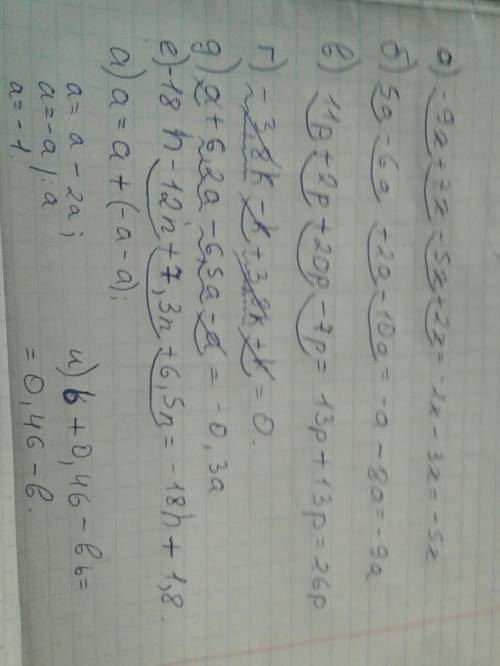 а) -9x+7x-5x+2x=-2x-3x=-5x
б) 5a-6a+2a-10a=-a-8a=-9a
в) 11p+2p+20p-7p=13p+13p=26p
г) -3,8k-k+3,8k+k=0.
д) a+6,2a-6,5a-a=-0,3a
е) -18n-12n+7,3n+6,5n=-18n+1,8.
а) a=a+(-a-a);
a=a-2a;
a=-a/:a
a=-1.
и) b+0,4b-bb=
=0,4b-b.